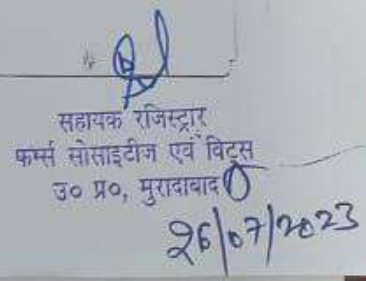 सहायक रजिस्ट्रार
फर्म्स सोसाइटीज एवं चिट्स
उ० प्र०, मुरादाबाद
26/07/2023